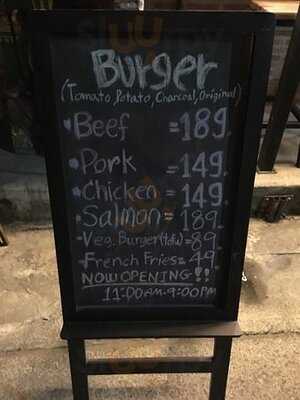 Burger
(Tomato, Potato, Charcoal, Original)
Beef = 189.
Pork = 149.
Chicken = 149.
Salmon = 189.
Veg. Burger (tofu) = 89.
French Fries = 49.
NOW OPENING !!
11:00AM-9:00PM